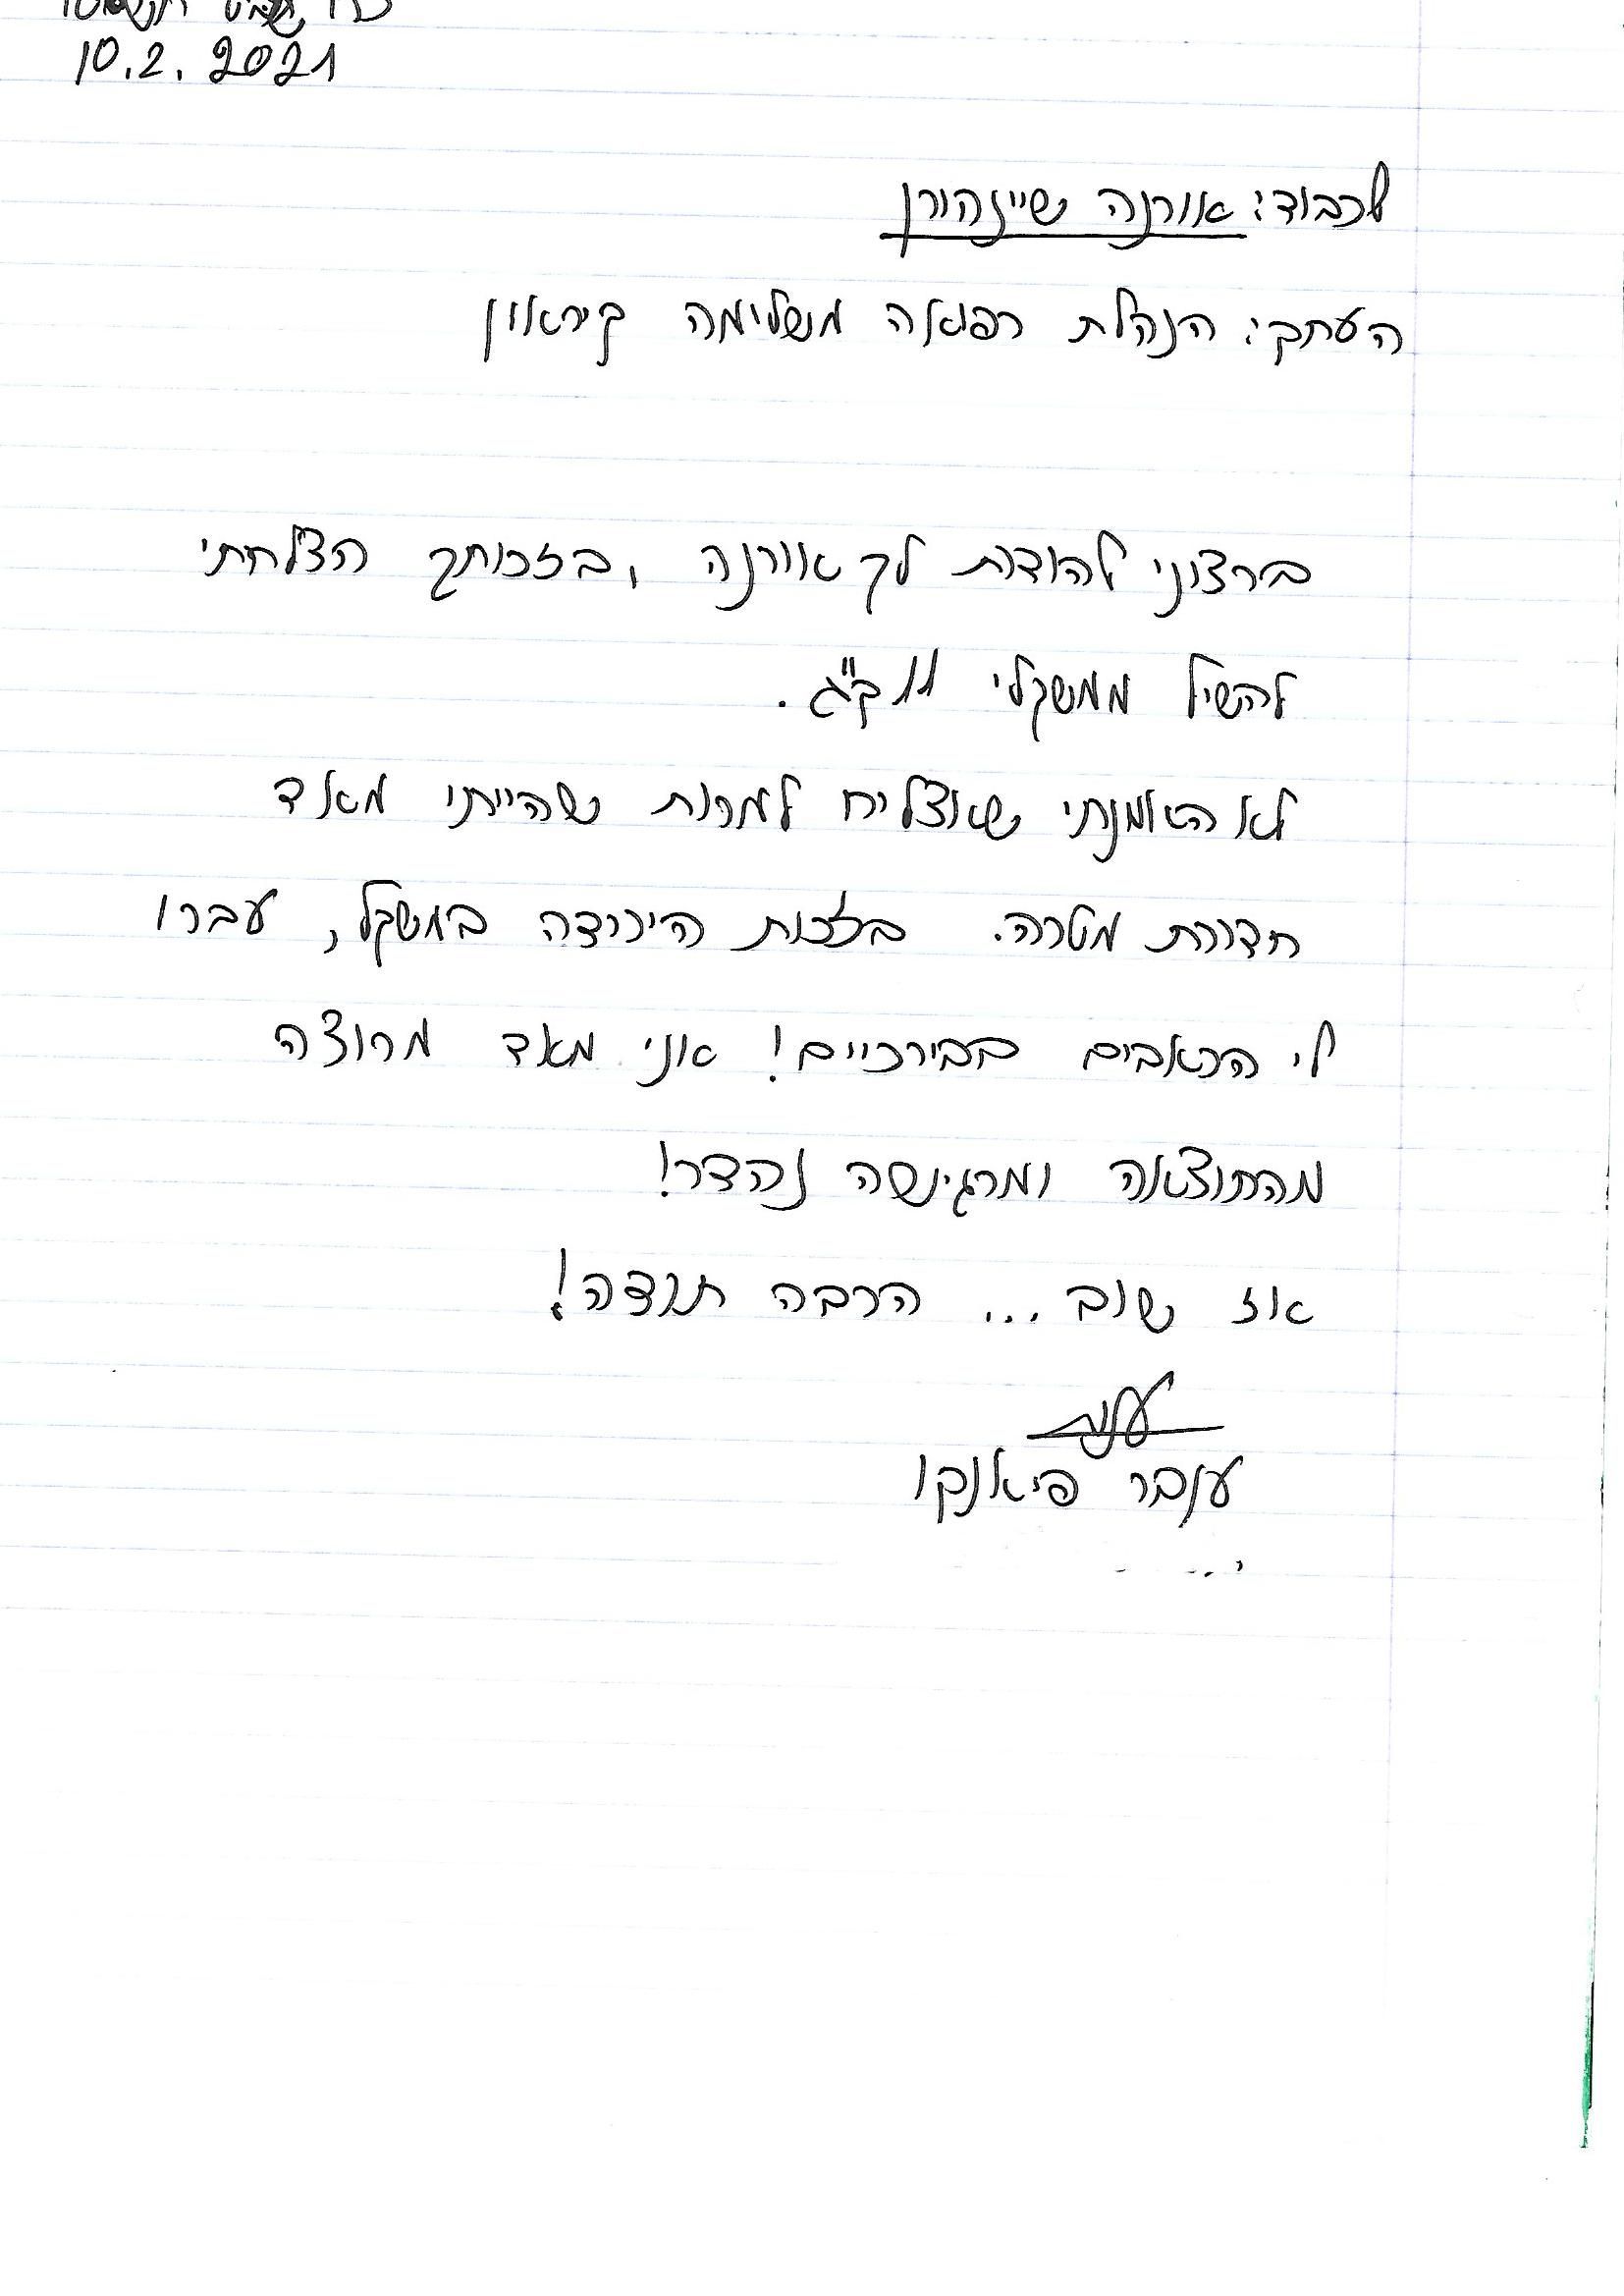 10.2.2021
לכבוד: אורנה שיינהורן
העתק: הנהלת רפואה משלימה קיראון
ברצוני להודות לך אורנה, בזכותך הצלחתי
להשיל ממשקלי 11 ק"ג.
לא האמנתי שאצליח למרות שהייתי מאד
חדורת מטרה. בזכות הירידה במשקל, עברו
לי הכאבים בבירכיים! אני מאד מרוצה
מהתוצאה ומרגישה נהדר!
אז שוב... הרבה תודה!
ענבר פיאנקו